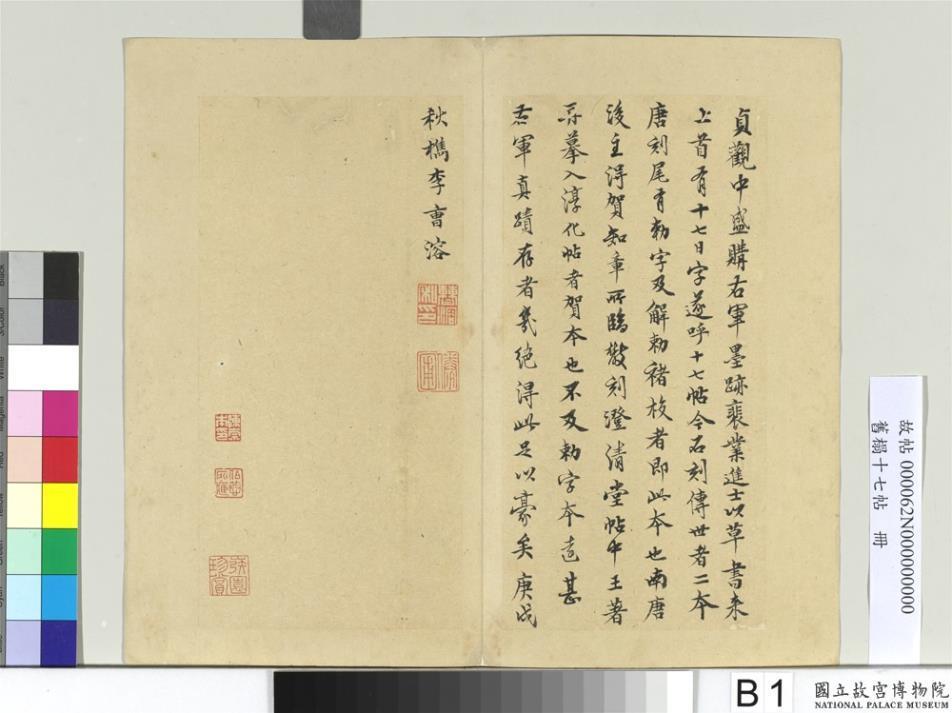 貞觀中盛購右軍墨跡裴業進士以草書來
上首有十七日字遂呼十七帖今石刻傳世者二本
唐刻尾有勅字及解勅褚校者即此本也南唐
後主得賀知章所臨數刻澄清堂帖中王著
再摹入淳化帖者賀本也不及勅字本遠甚
右軍真蹟存者幾絕得此足以豪矣庚戌
秋檇李曹溶
珍賞
故帖 000062N000000000
舊榻十七帖 冊
B 1
國立故宮博物院
NATIONAL PALACE MUSEUM